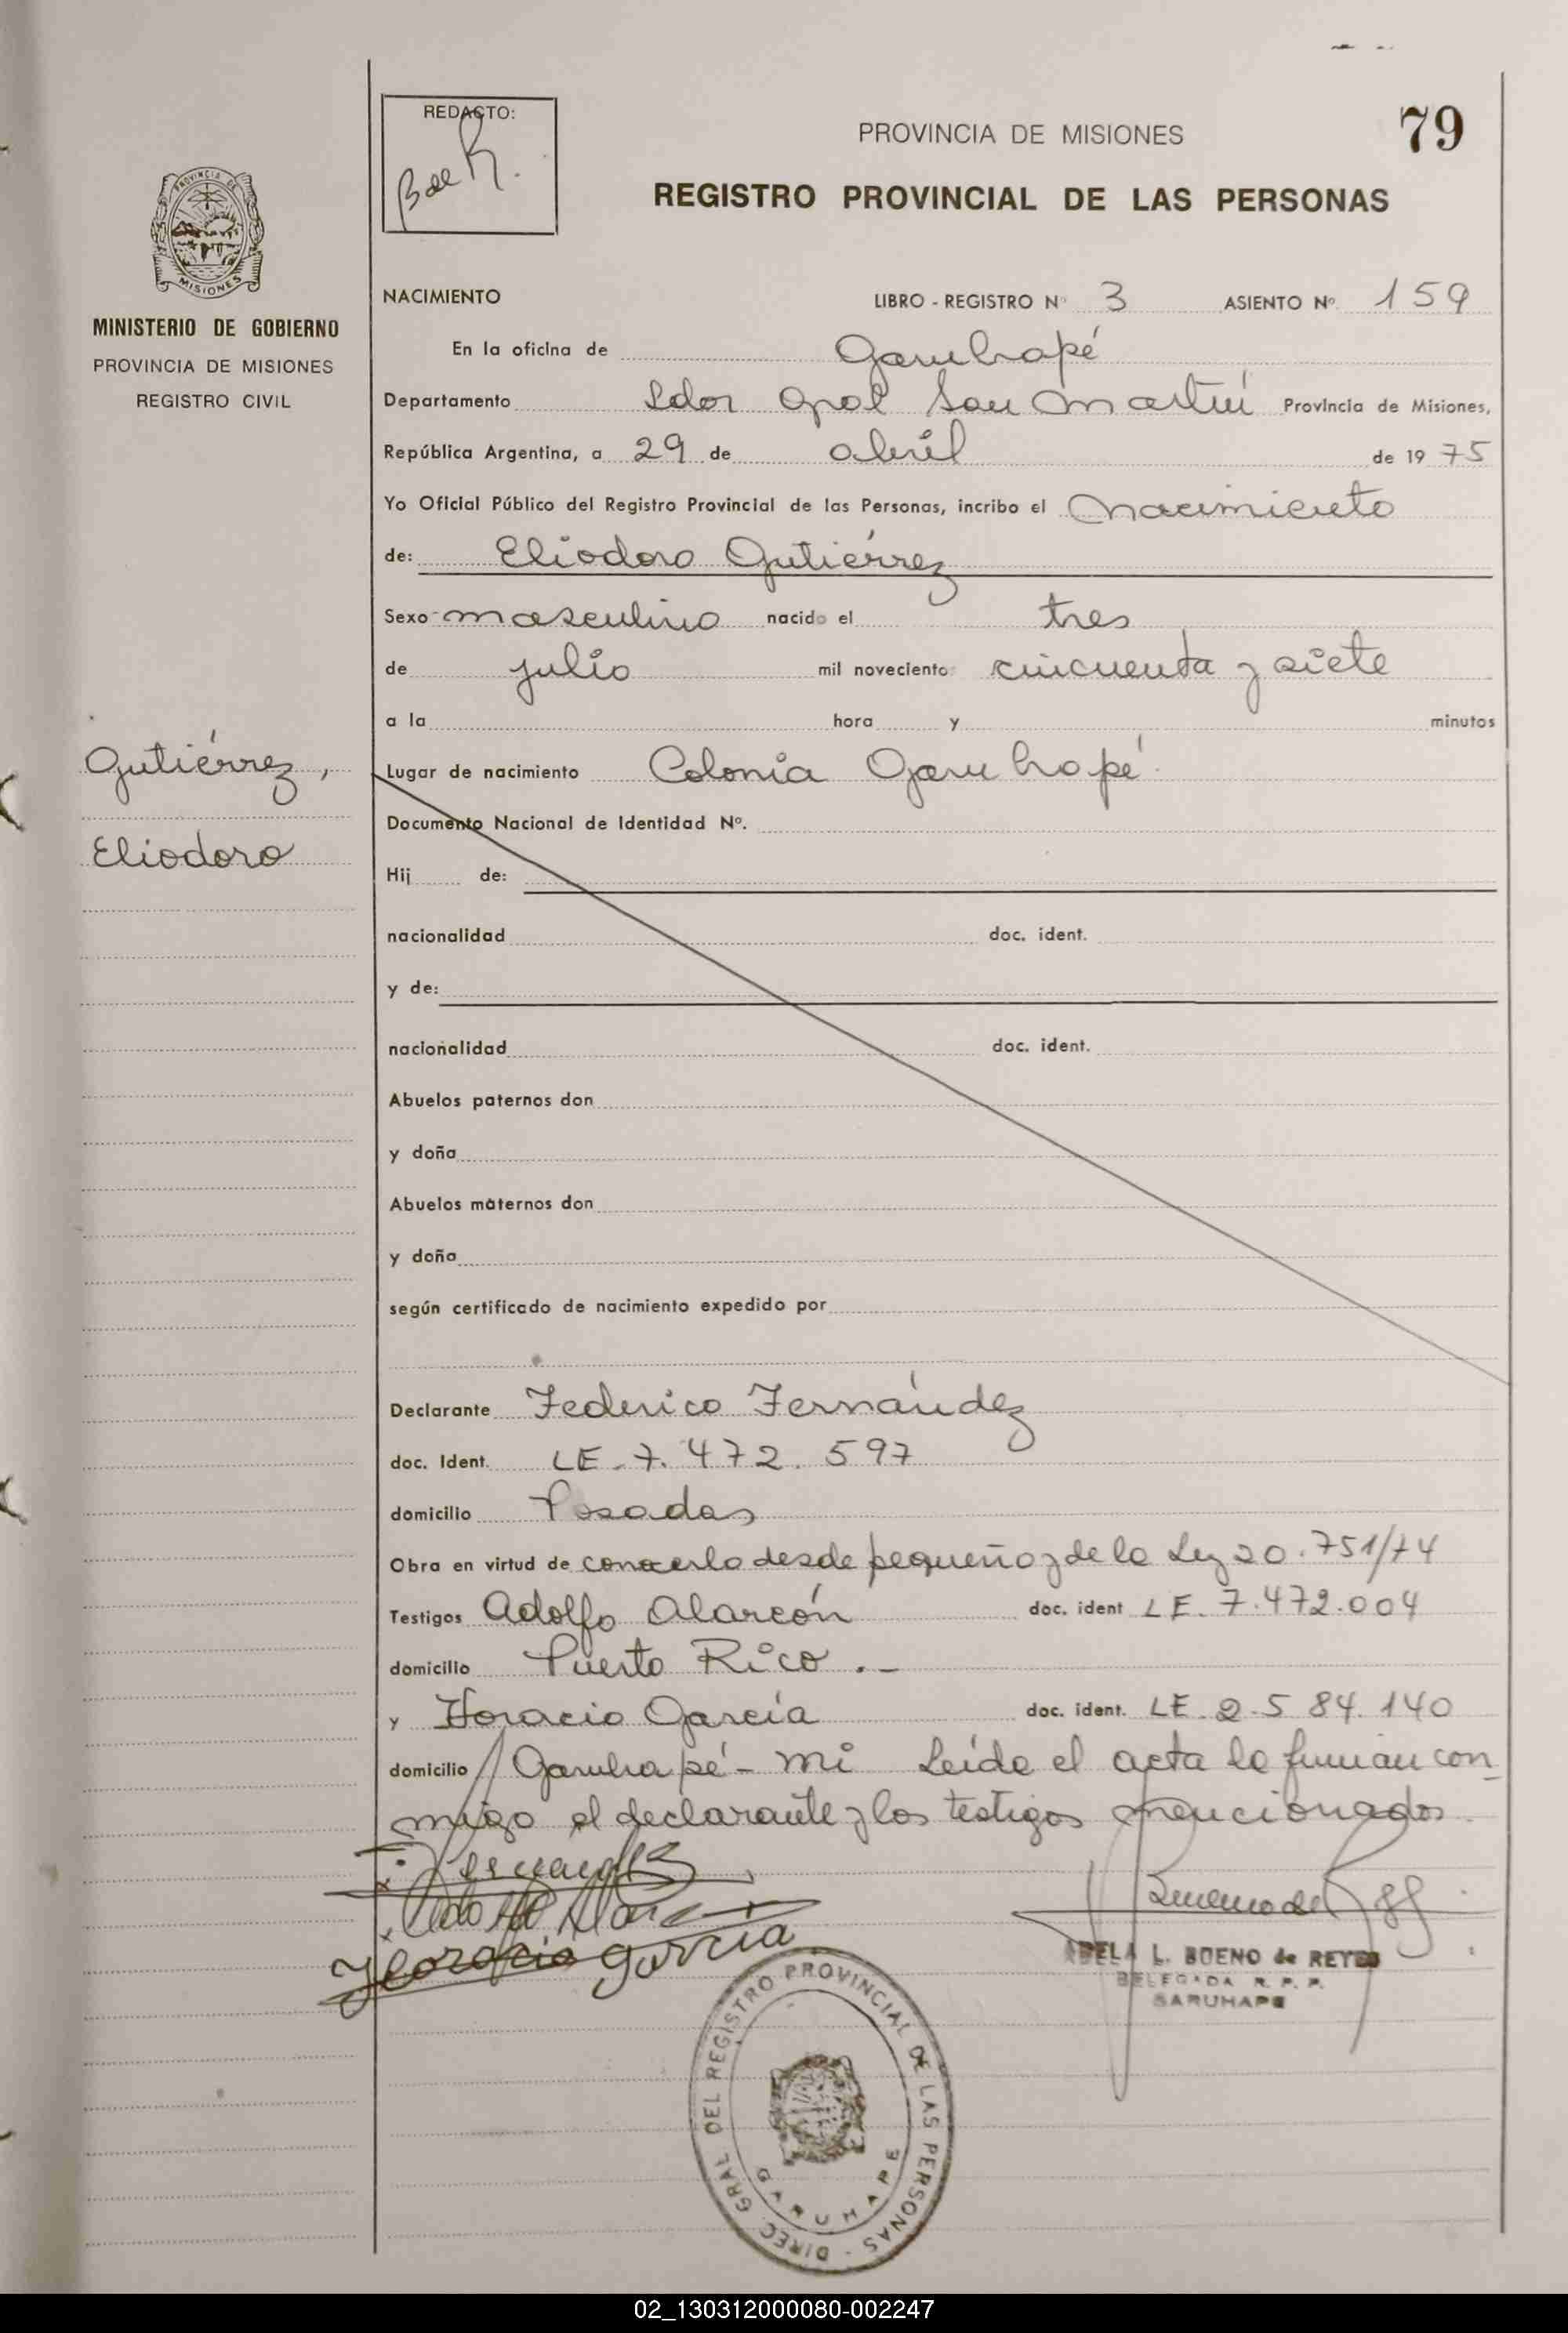 REDACTO:
B de R.
PROVINCIA DE MISIONES
79
REGISTRO PROVINCIAL DE LAS PERSONAS
PROVINCIA DE
MISIONES
MINISTERIO DE GOBIERNO
PROVINCIA DE MISIONES
REGISTRO CIVIL
Gutiérrez,
Eliodoro
NACIMIENTO LIBRO - REGISTRO Nº 3 ASIENTO Nº 159
En la oficina de Garuhapé
Departamento Ldor Gral San Martín Provincia de Misiones,
República Argentina, a 29 de abril de 19 75
Yo Oficial Público del Registro Provincial de las Personas, incribo el Nacimiento
de: Eliodoro Gutiérrez
Sexo masculino nacido el tres
de julio mil noveciento cincuenta y siete
a la hora y minutos
Lugar de nacimiento Colonia Garuhapé
Documento Nacional de Identidad Nº.
Hij de:
nacionalidad doc. ident.
y de:
nacionalidad doc. ident.
Abuelos paternos don
y doña
Abuelos maternos don
y doña
según certificado de nacimiento expedido por
Declarante Federico Fernández
doc. Ident. LE. 7.472.597
domicilio Posadas
Obra en virtud de conocerlo desde pequeño y de la Ley 20.751/74
Testigos Adolfo Alarcón doc. ident LE. 7.472.004
domicilio Puerto Rico.-
y Horacio García doc. ident. LE 2.584.140
domicilio Garuhapé - Mi Leída el acta la firman con
migo el declarante y los testigos mencionados.
F. Fernandez
Adolfo Alarcon
Horacio Garcia
Bueno de
ADELA L. BUENO de REYES
DELEGADA R. P. P.
GARUHAPE
DIREC. GRAL DEL REGISTRO PROVINCIAL DE LAS PERSONAS -
GARUHAPE
02_130312000080-002247